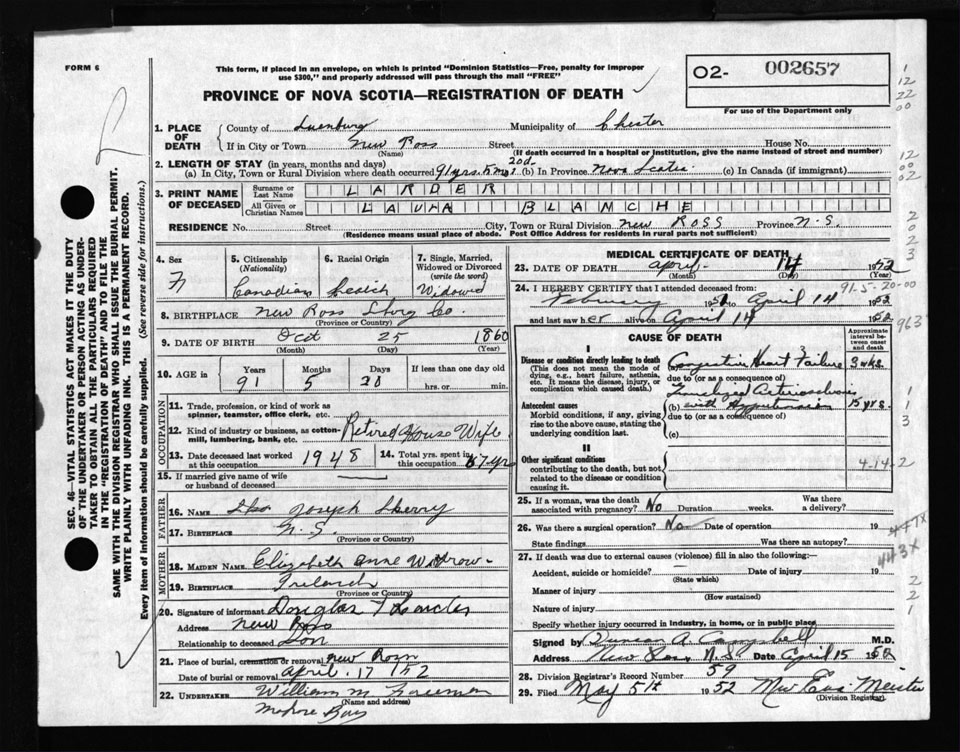 FORM 6
This form, if placed in an envelope, on which is printed "Dominion Statistics—Free, penalty for improper
use $300," and properly addressed will pass through the mail "FREE"
O2- 002657
PROVINCE OF NOVA SCOTIA—REGISTRATION OF DEATH
For use of the Department only
1. PLACE OF DEATH
County of Lunenburg Municipality of Chester
If in City or Town New Ross Street House No.
(Name) (If death occurred in a hospital or institution, give the name instead of street and number)
2. LENGTH OF STAY (in years, months and days)
(a) In City, Town or Rural Division where death occurred 91 yrs. 5 mos 20d. (b) In Province Nova Scotia (c) In Canada (if immigrant)
3. PRINT NAME OF DECEASED
Surname or Last Name LARDER
All Given or Christian Names LAURA BLANCHE
RESIDENCE No. Street City, Town or Rural Division New ROSS Province N.S.
(Residence means usual place of abode. Post Office Address for residents in rural parts not sufficient)
4. Sex F
5. Citizenship (Nationality) Canadian
6. Racial Origin
7. Single, Married, Widowed or Divorced (write the word) Widowed
8. BIRTHPLACE New Ross Co.
(Province or Country)
9. DATE OF BIRTH Oct 25 1860
(Month) (Day) (Year)
10. AGE in Years 91 Months 5 Days 20 If less than one day old hrs. or min.
OCCUPATION
11. Trade, profession, or kind of work as spinner, teamster, office clerk, etc.
12. Kind of industry or business, as cotton-mill, lumbering, bank, etc. Retired House Wife
13. Date deceased last worked at this occupation 1948
14. Total yrs. spent in this occupation 67 yrs
15. If married give name of wife or husband of deceased
FATHER
16. Name Joseph
17. BIRTHPLACE N.S.
(Province or Country)
MOTHER
18. MAIDEN NAME Elizabeth Anne
19. BIRTHPLACE Ireland
(Province or Country)
20. Signature of informant Douglas
Address New Ross
Relationship to deceased Son
21. Place of burial, cremation or removal New Ross
Date of burial or removal April 17 / 52
22. UNDERTAKER William M.
(Name and address)
Mahone Bay
MEDICAL CERTIFICATE OF DEATH
23. DATE OF DEATH April 14 1952
(Month) (Day) (Year)
24. I HEREBY CERTIFY that I attended deceased from: 91-5-20-00
February 195 to April 14 1952
and last saw her alive on April 14 1952
CAUSE OF DEATH
Approximate interval between onset and death
I
Disease or condition directly leading to death
(This does not mean the mode of dying, e.g., heart failure, asthenia, etc. It means the disease, injury, or complication which caused death.)
Congestive Heart Failure 3 wks.
due to (or as a consequence of)
Antecedent causes
Morbid conditions, if any, giving rise to the above cause, stating the underlying condition last.
Generalized Arteriosclerosis
(b) with Hypertension 15 yrs.
due to (or as a consequence of)
(c)
II
Other significant conditions
contributing to the death, but not related to the disease or condition causing it.
4-14-2
25. If a woman, was the death associated with pregnancy? No Duration weeks. Was there a delivery?
26. Was there a surgical operation? No Date of operation 19
State findings Was there an autopsy?
27. If death was due to external causes (violence) fill in also the following:—
Accident, suicide or homicide? Date of injury 19
(State which)
Manner of injury
(How sustained)
Nature of injury
Specify whether injury occurred in industry, in home, or in public place
Signed by Duncan A. Campbell M.D.
Address New Ross N.S Date April 15 1952
28. Division Registrar's Record Number 59
29. Filed May 5th 1952
(Division Registrar)
443X
SEC. 46—VITAL STATISTICS ACT MAKES IT THE DUTY
OF THE UNDERTAKER OR PERSON ACTING AS UNDER-
TAKER TO OBTAIN ALL THE PARTICULARS REQUIRED
IN THE "REGISTRATION OF DEATH" AND TO FILE THE
SAME WITH THE DIVISION REGISTRAR WHO SHALL ISSUE THE BURIAL PERMIT.
WRITE PLAINLY WITH UNFADING INK. THIS IS A PERMANENT RECORD.
Every item of information should be carefully supplied. (See reverse side for instructions.)